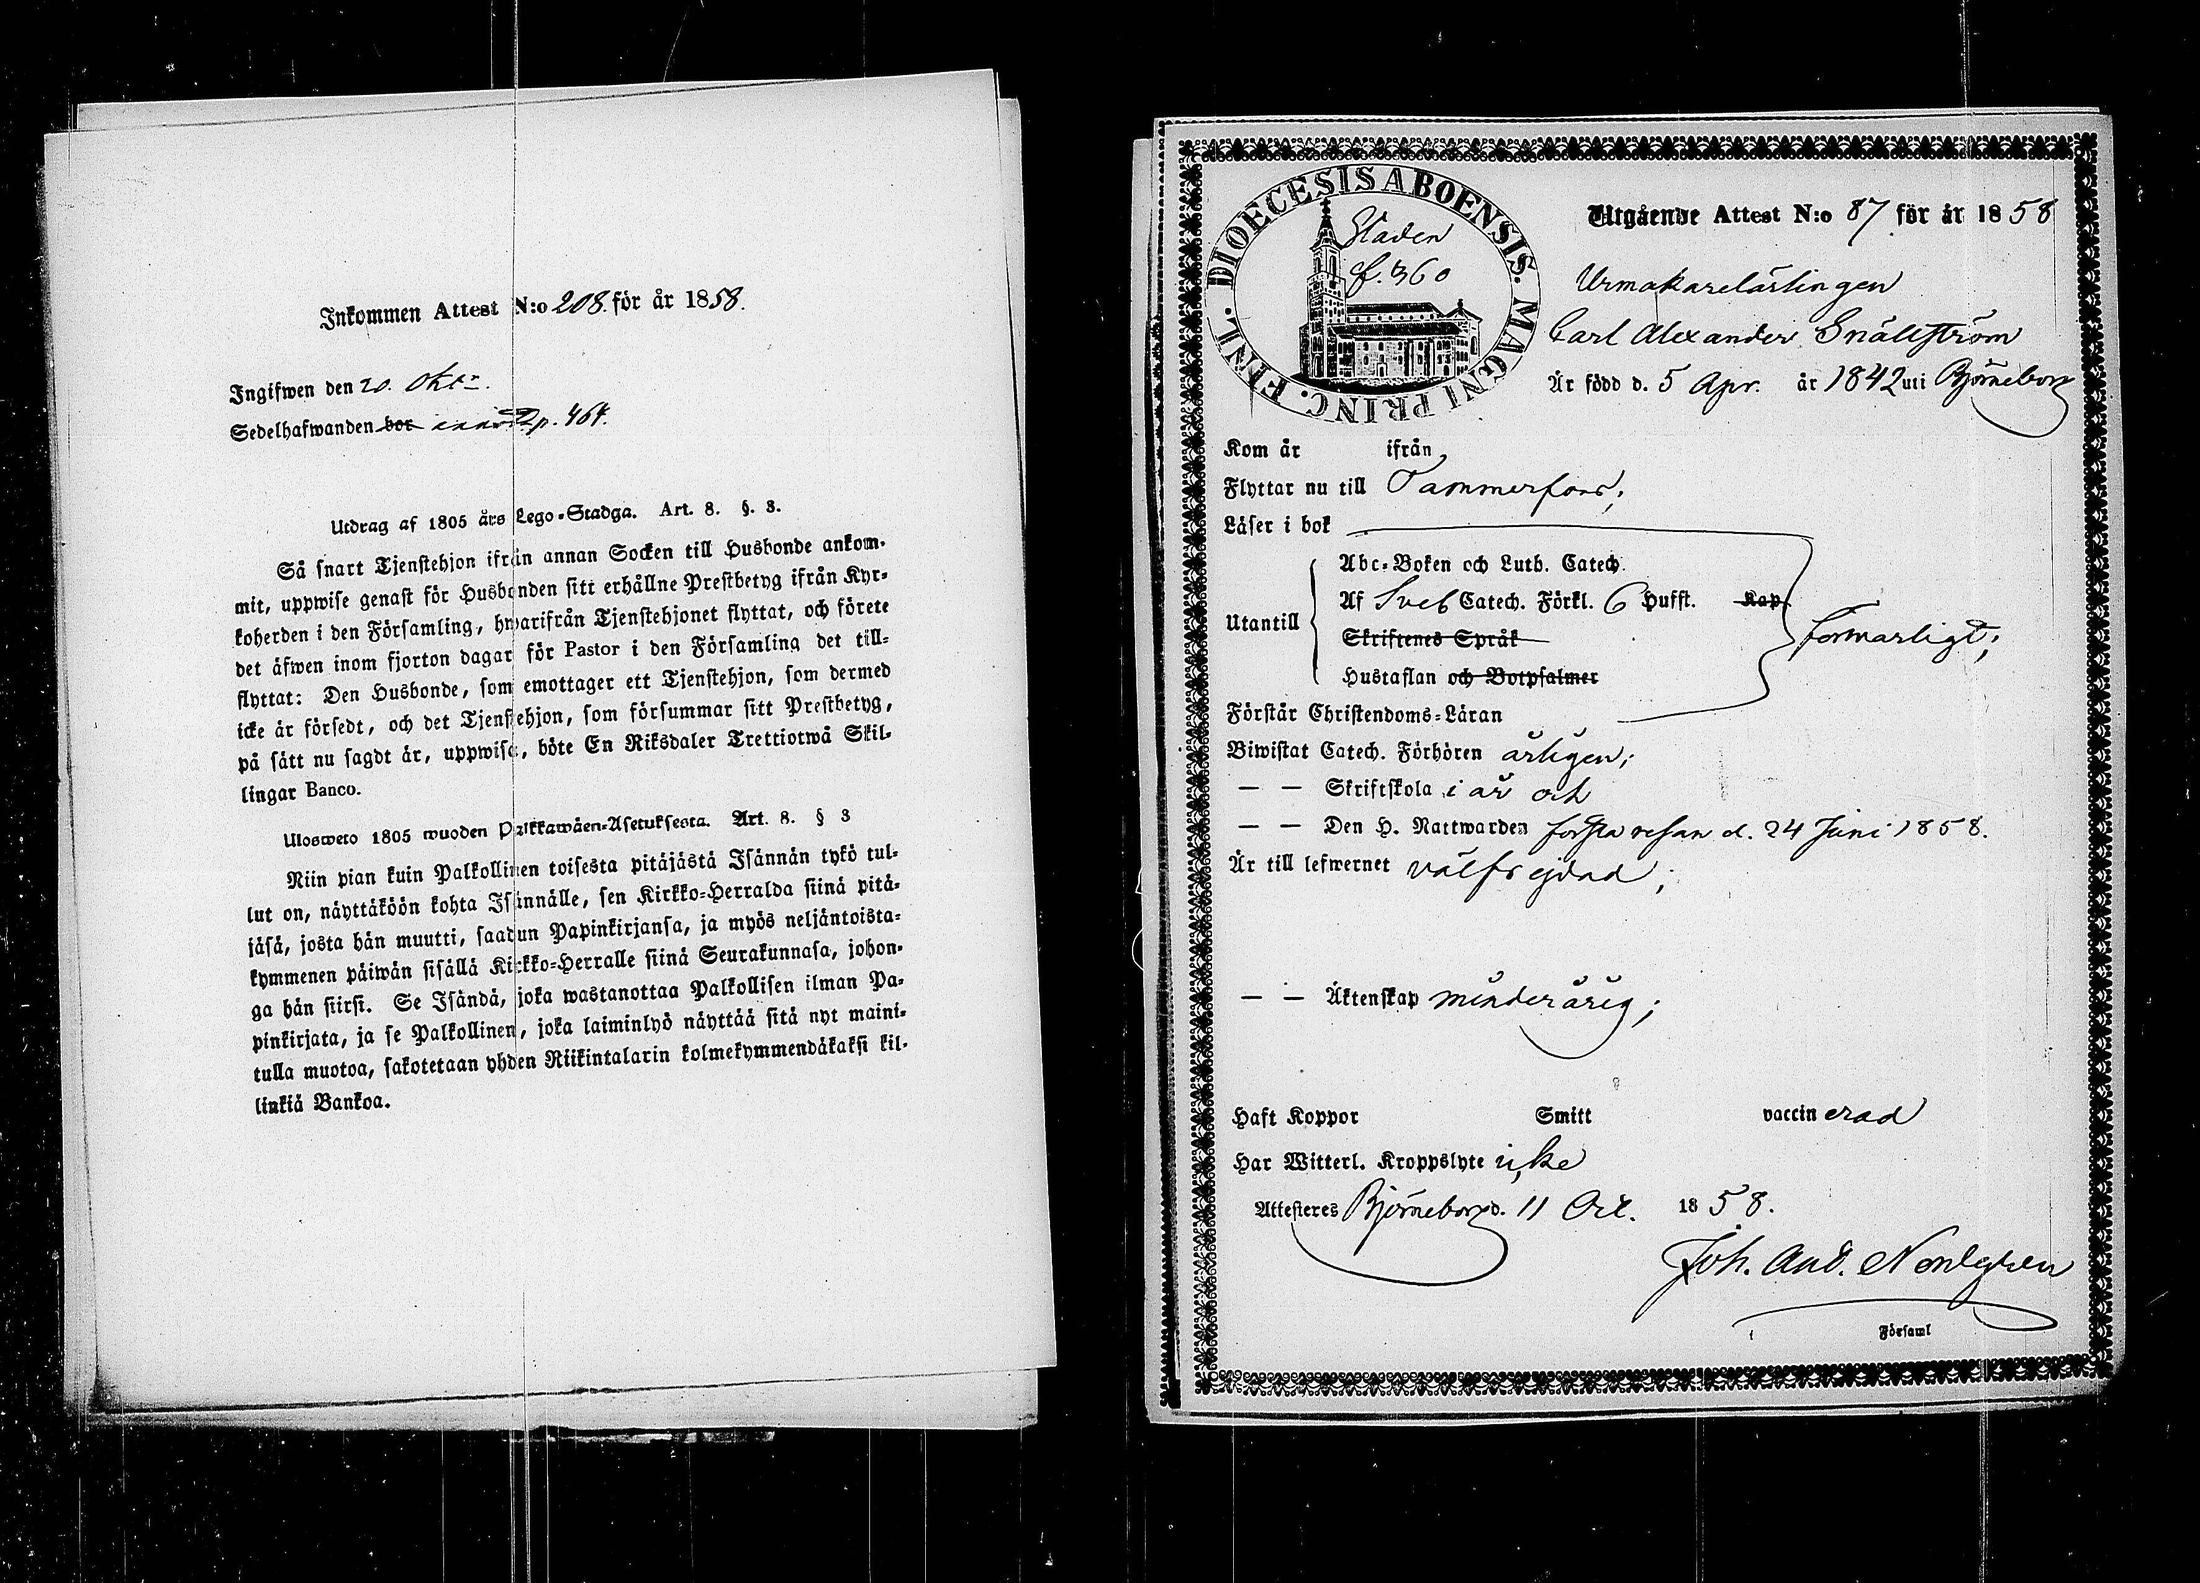 Inkommen Attest N:o 208. för år 1858.
Ingifwen den 20. Okt.
Sedelhafwanden bor p. 464.
Utdrag af 1805 års Lego-Stadga. Art. 8. §. 3.
Så snart Tjenstehjon ifrån annan Socken till Husbonde ankom-
mit, uppwise genast för Husbonden sitt erhållne Prestbetyg ifrån Kyr-
koherden i den Församling, hwarifrån Tjenstehjonet flyttat, och förete
det äfwen inom fjorton dagar för Pastor i den Församling det till-
flyttat: Den Husbonde, som emottager ett Tjenstehjon, som dermed
icke är försedt, och det Tjenstehjon, som försummar sitt Prestbetyg,
på sätt nu sagdt är, uppwisa, böte En Riksdaler Trettiotwå Skil-
lingar Banco.
Ulosweto 1805 wuoden Palkkawäen-Asetuksesta. Art. 8. § 3
Niin pian kuin Palkollinen toisesta pitäjästä Isännän tykö tul-
lut on, näyttäköön kohta Isännälle, sen Kirkko-Herralda siinä pitä-
jäsä, josta hän muutti, saadun Papinkirjansa, ja myös neljäntoista-
kymmenen päiwän sisällä Kirkko-Herralle siinä Seurakunnasa, johon-
ga hän siirsi. Se Isändä, joka wastanottaa Palkollisen ilman Pa-
pinkirjata, ja se Palkollinen, joka laiminlyö näyttää sitä nyt maini-
tulla muotoa, sakotetaan yhden Riikintalarin kolmekymmendäkaksi kil-
linkiä Bankoa.
DIOECESIS ABOENSIS. MAGNI PRINC. FINL.
Staden
f. 360
Utgående Attest N:o 87 för år 1858
Urmakarelärlingen
Carl Alexander Snällström
Är född d. 5 Apr. år 1842 uti Björneborg
Kom år ifrån
Flyttar nu till Tammerfors;
Läser i bok
Abc-Boken och Luth. Catech.
Utantill Af Sveb Catech. Förkl. 6 Hufst. Kap.
Skriftenes Språk
Hustaflan och Botpsalmer
förswarligt;
Förstår Christendoms-Läran
Biwistat Catech. Förhören årligen;
— — Skriftskola i år och
— — Den H. Nattwarden första resan d. 24 Juni 1858.
Är till lefwernet välfrejdad;
— — Äktenskap minderårig;
Haft Koppor Smitt vaccinerad
Har Witterl. Kroppslyte icke
Attesteres Björneborg d. 11 Oct. 1858.
Joh. And. Nordgren
Församl